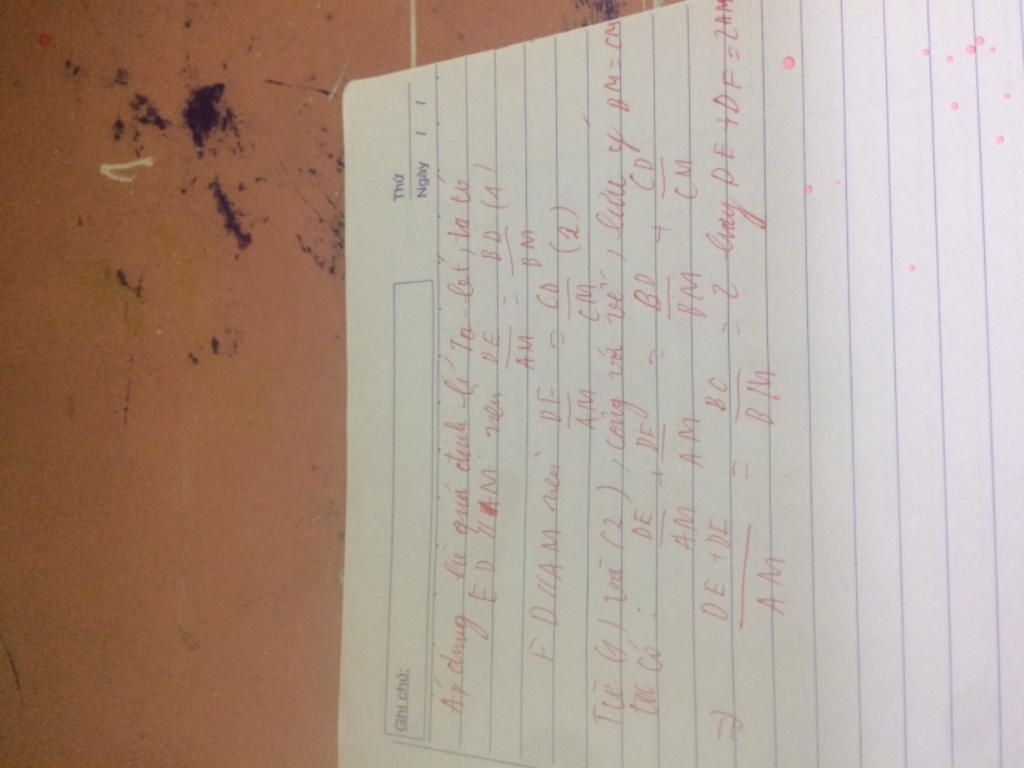 Thứ
Ngày / /
Ghi chú:
Áp dụng hệ quả định lí Ta-lét, ta có
ED // AM nên DE/AM = BD/BM (1)
FD // AM nên DF/AM = CD/CM (2)
Từ (1) và (2), cộng vế với vế, lưu ý BM = CM
ta có: DE/AM + DF/AM = BD/BM + CD/CM
=> DE + DF/AM = BC/BM = 2 hay DE + DF = 2AM